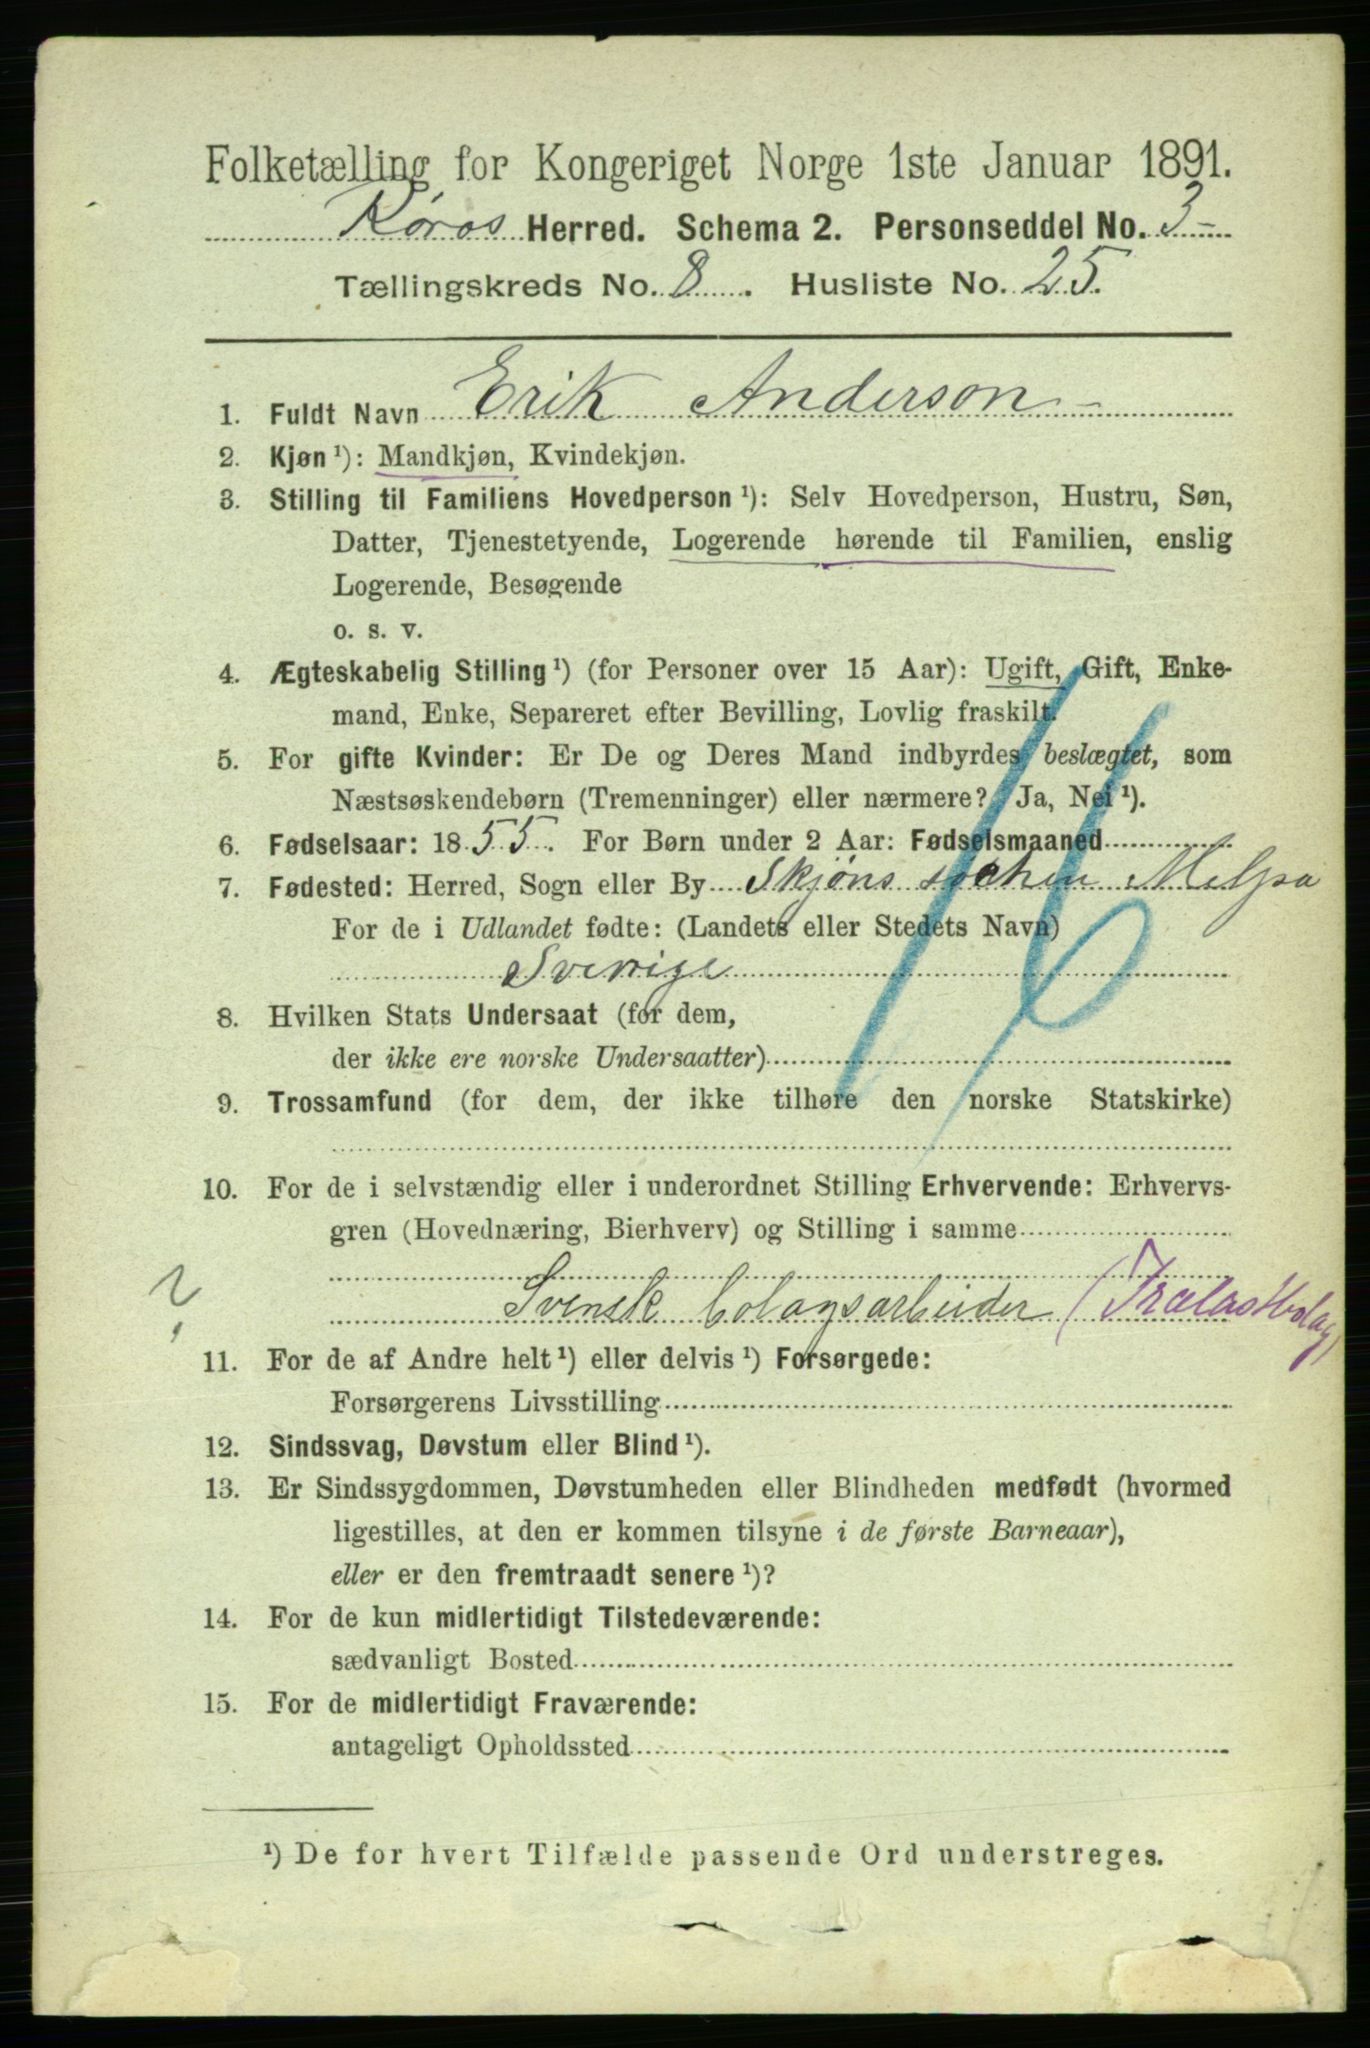 Folketælling for Kongeriget Norge 1ste Januar 1891.
Røros Herred. Schema 2. Personseddel No. 3
Tællingskreds No. 8. Husliste No. 25.
1. Fuldt Navn Erik Anderson
2. Kjøn ¹): Mandkjøn, Kvindekjøn.
3. Stilling til Familiens Hovedperson ¹): Selv Hovedperson, Hustru, Søn,
Datter, Tjenestetyende, Logerende hørende til Familien, enslig
Logerende, Besøgende
o. s. v.
4. Ægteskabelig Stilling ¹) (for Personer over 15 Aar): Ugift, Gift, Enke-
mand, Enke, Separeret efter Bevilling, Lovlig fraskilt.
5. For gifte Kvinder: Er De og Deres Mand indbyrdes beslægtet, som
Næstsøskendebørn (Tremenninger) eller nærmere? Ja, Nei ¹).
16
6. Fødselsaar: 1855. For Børn under 2 Aar: Fødselsmaaned
7. Fødested: Herred, Sogn eller By Skjöns sochen
For de i Udlandet fødte: (Landets eller Stedets Navn)
Sverrige
8. Hvilken Stats Undersaat (for dem,
der ikke ere norske Undersaatter)
9. Trossamfund (for dem, der ikke tilhøre den norske Statskirke)
10. For de i selvstændig eller i underordnet Stilling Erhvervende: Erhvervs-
gren (Hovednæring, Bierhverv) og Stilling i samme
? Svensk bolagsarbeider (Trælastbolag)
11. For de af Andre helt ¹) eller delvis ¹) Forsørgede:
Forsørgerens Livsstilling
12. Sindssvag, Døvstum eller Blind ¹).
13. Er Sindssygdommen, Døvstumheden eller Blindheden medfødt (hvormed
ligestilles, at den er kommen tilsyne i de første Barneaar),
eller er den fremtraadt senere ¹)?
14. For de kun midlertidigt Tilstedeværende:
sædvanligt Bosted
15. For de midlertidigt Fraværende:
antageligt Opholdssted
¹) De for hvert Tilfælde passende Ord understreges.